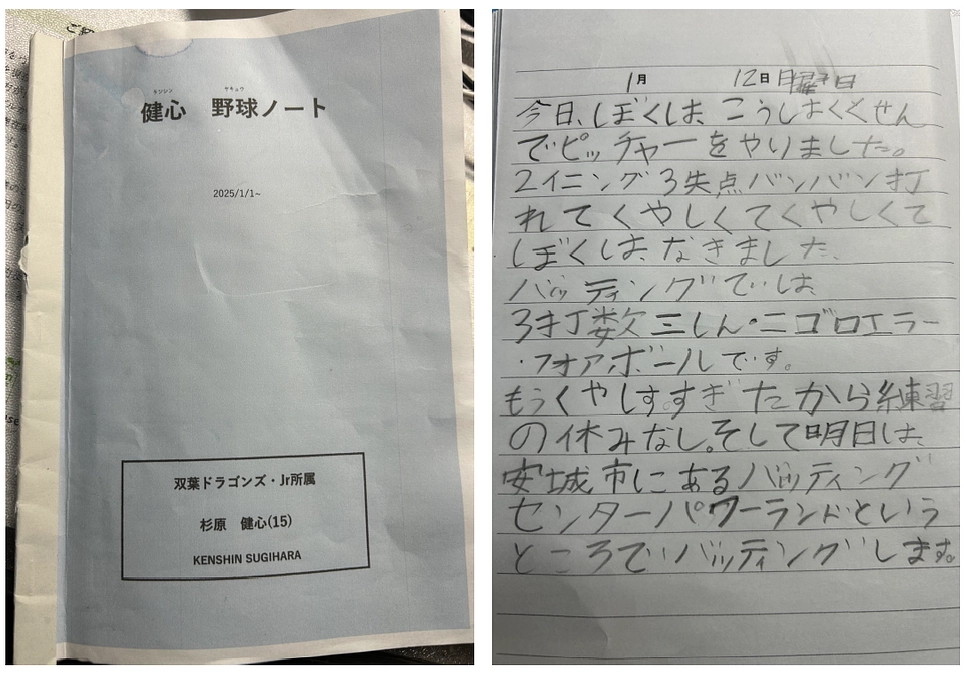 ケンシン ヤキュウ
健心 野球ノート
2025/1/1~
双葉ドラゴンズ・Jr所属
杉原 健心(15)
KENSHIN SUGIHARA
1月 12日 月曜日
今日、ぼくは、こうはくせん
でピッチャーをやりました。
2イニング3失点バンバン打
れてくやしくてくやしくて
ぼくは、なきました、
バッティングでは
3打数三しん・ニゴロエラー
・フォアボールです。
もうくやしすすぎたから練習
の休みなし。そして明日は、
安城市にあるバッティング
センターパワーランドという
ところでバッティングします。